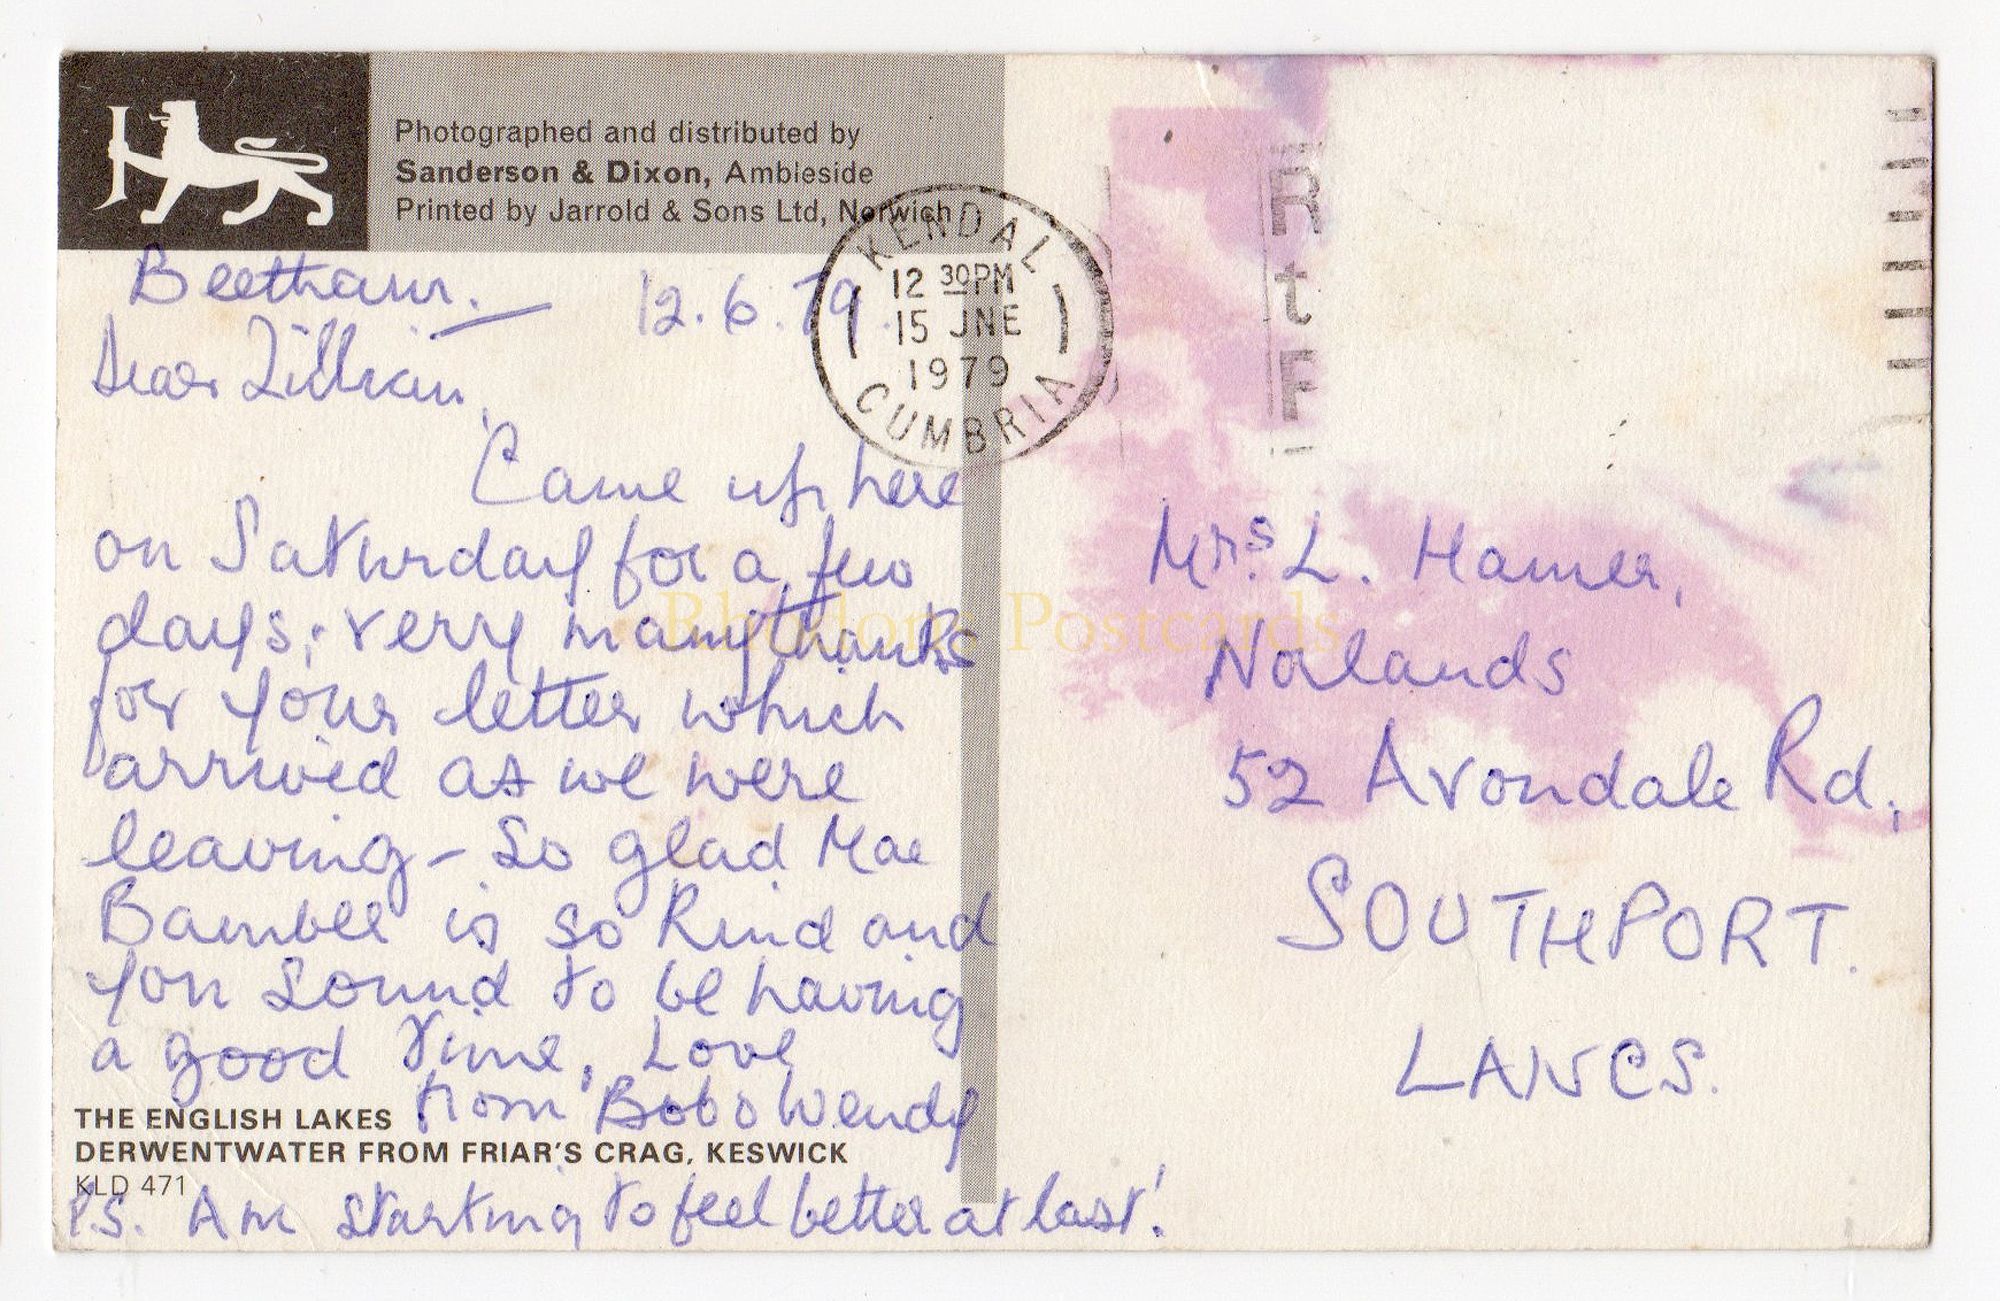 Photographed and distributed by
Sanderson & Dixon, Ambleside
Printed by Jarrold & Sons Ltd, Norwich
KENDAL
12 30PM
15 JNE
1979
CUMBRIA
R
t
P
Beetham. 12.6.79.
Dear Lillian,
Came up here
on Saturday for a few
days; very many thanks
for your letter which
arrived as we were
leaving - So glad Mae
Bambee is so kind and
you sound to be having
a good time, Love
from Bob & Wendy
THE ENGLISH LAKES
DERWENTWATER FROM FRIAR'S CRAG, KESWICK
KLD 471
P.S. Am starting to feel better at last!
Mrs. L. Hamer,
Norlands
52 Avondale Rd,
SOUTHPORT.
LANCS.
Rhodons Postcards